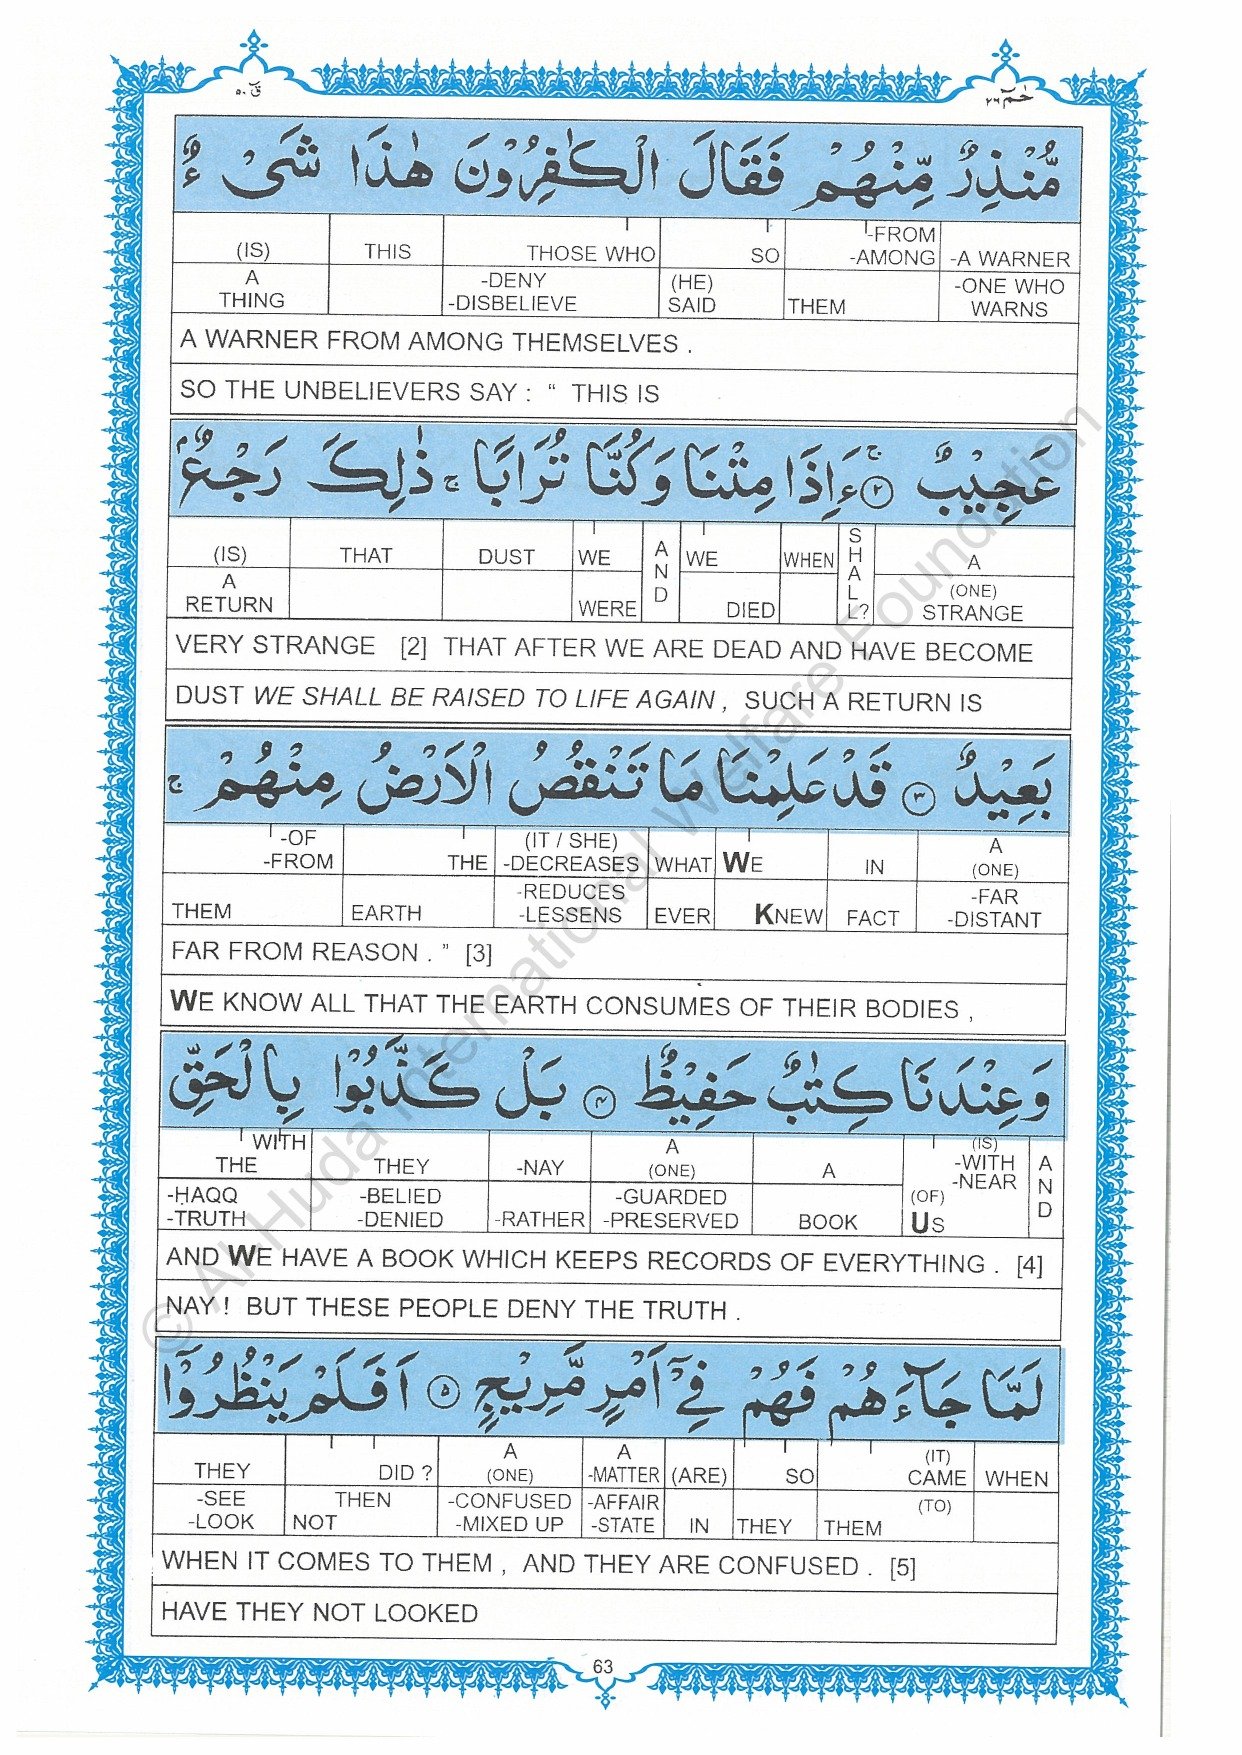 قٓ ۵۰
حٰمٓ ۲۶
مُّنْذِرٌ مِّنْهُمْ فَقَالَ الْكٰفِرُوْنَ هٰذَا شَیْءٌ
-A WARNER -ONE WHO WARNS | -FROM -AMONG THEM | SO (HE) SAID | THOSE WHO -DENY -DISBELIEVE | THIS | (IS) A THING
A WARNER FROM AMONG THEMSELVES .
SO THE UNBELIEVERS SAY : “ THIS IS
عَجِيْبٌ ۚ‏ ﴿۲﴾ ءَاِذَا مِتْنَا وَكُنَّا تُرَابًا ۚ ذٰلِكَ رَجْعٌۢ
A (ONE) STRANGE | SHALL? | WHEN | WE DIED | AND | WE WERE | DUST | THAT | (IS) A RETURN
VERY STRANGE [2] THAT AFTER WE ARE DEAD AND HAVE BECOME
DUST WE SHALL BE RAISED TO LIFE AGAIN , SUCH A RETURN IS
بَعِيْدٌ ﴿۳﴾ قَدْ عَلِمْنَا مَا تَنْقُصُ الْاَرْضُ مِنْهُمْ ۚ
A (ONE) -FAR -DISTANT | IN FACT | WE KNEW | WHAT EVER | (IT / SHE) -DECREASES -REDUCES -LESSENS | THE EARTH | -OF -FROM THEM
FAR FROM REASON . ” [3]
WE KNOW ALL THAT THE EARTH CONSUMES OF THEIR BODIES ,
وَعِنْدَنَا كِتٰبٌ حَفِيْظٌ ﴿۴﴾ بَلْ كَذَّبُوْا بِالْحَقِّ
AND | (IS) -WITH -NEAR (OF) US | A BOOK | A (ONE) -GUARDED -PRESERVED | -NAY -RATHER | THEY -BELIED -DENIED | WITH THE -ḤAQQ -TRUTH
AND WE HAVE A BOOK WHICH KEEPS RECORDS OF EVERYTHING . [4]
NAY ! BUT THESE PEOPLE DENY THE TRUTH .
لَمَّا جَآءَهُمْ فَهُمْ فِیْۤ اَمْرٍ مَّرِيْجٍ ﴿۵﴾ اَفَلَمْ يَنْظُرُوْۤا
WHEN | (IT) CAME (TO) THEM | SO THEY | (ARE) IN | A -MATTER -AFFAIR -STATE | A (ONE) -CONFUSED -MIXED UP | DID ? THEN NOT | THEY -SEE -LOOK
WHEN IT COMES TO THEM , AND THEY ARE CONFUSED . [5]
HAVE THEY NOT LOOKED
63
© Al-Huda International Welfare Foundation